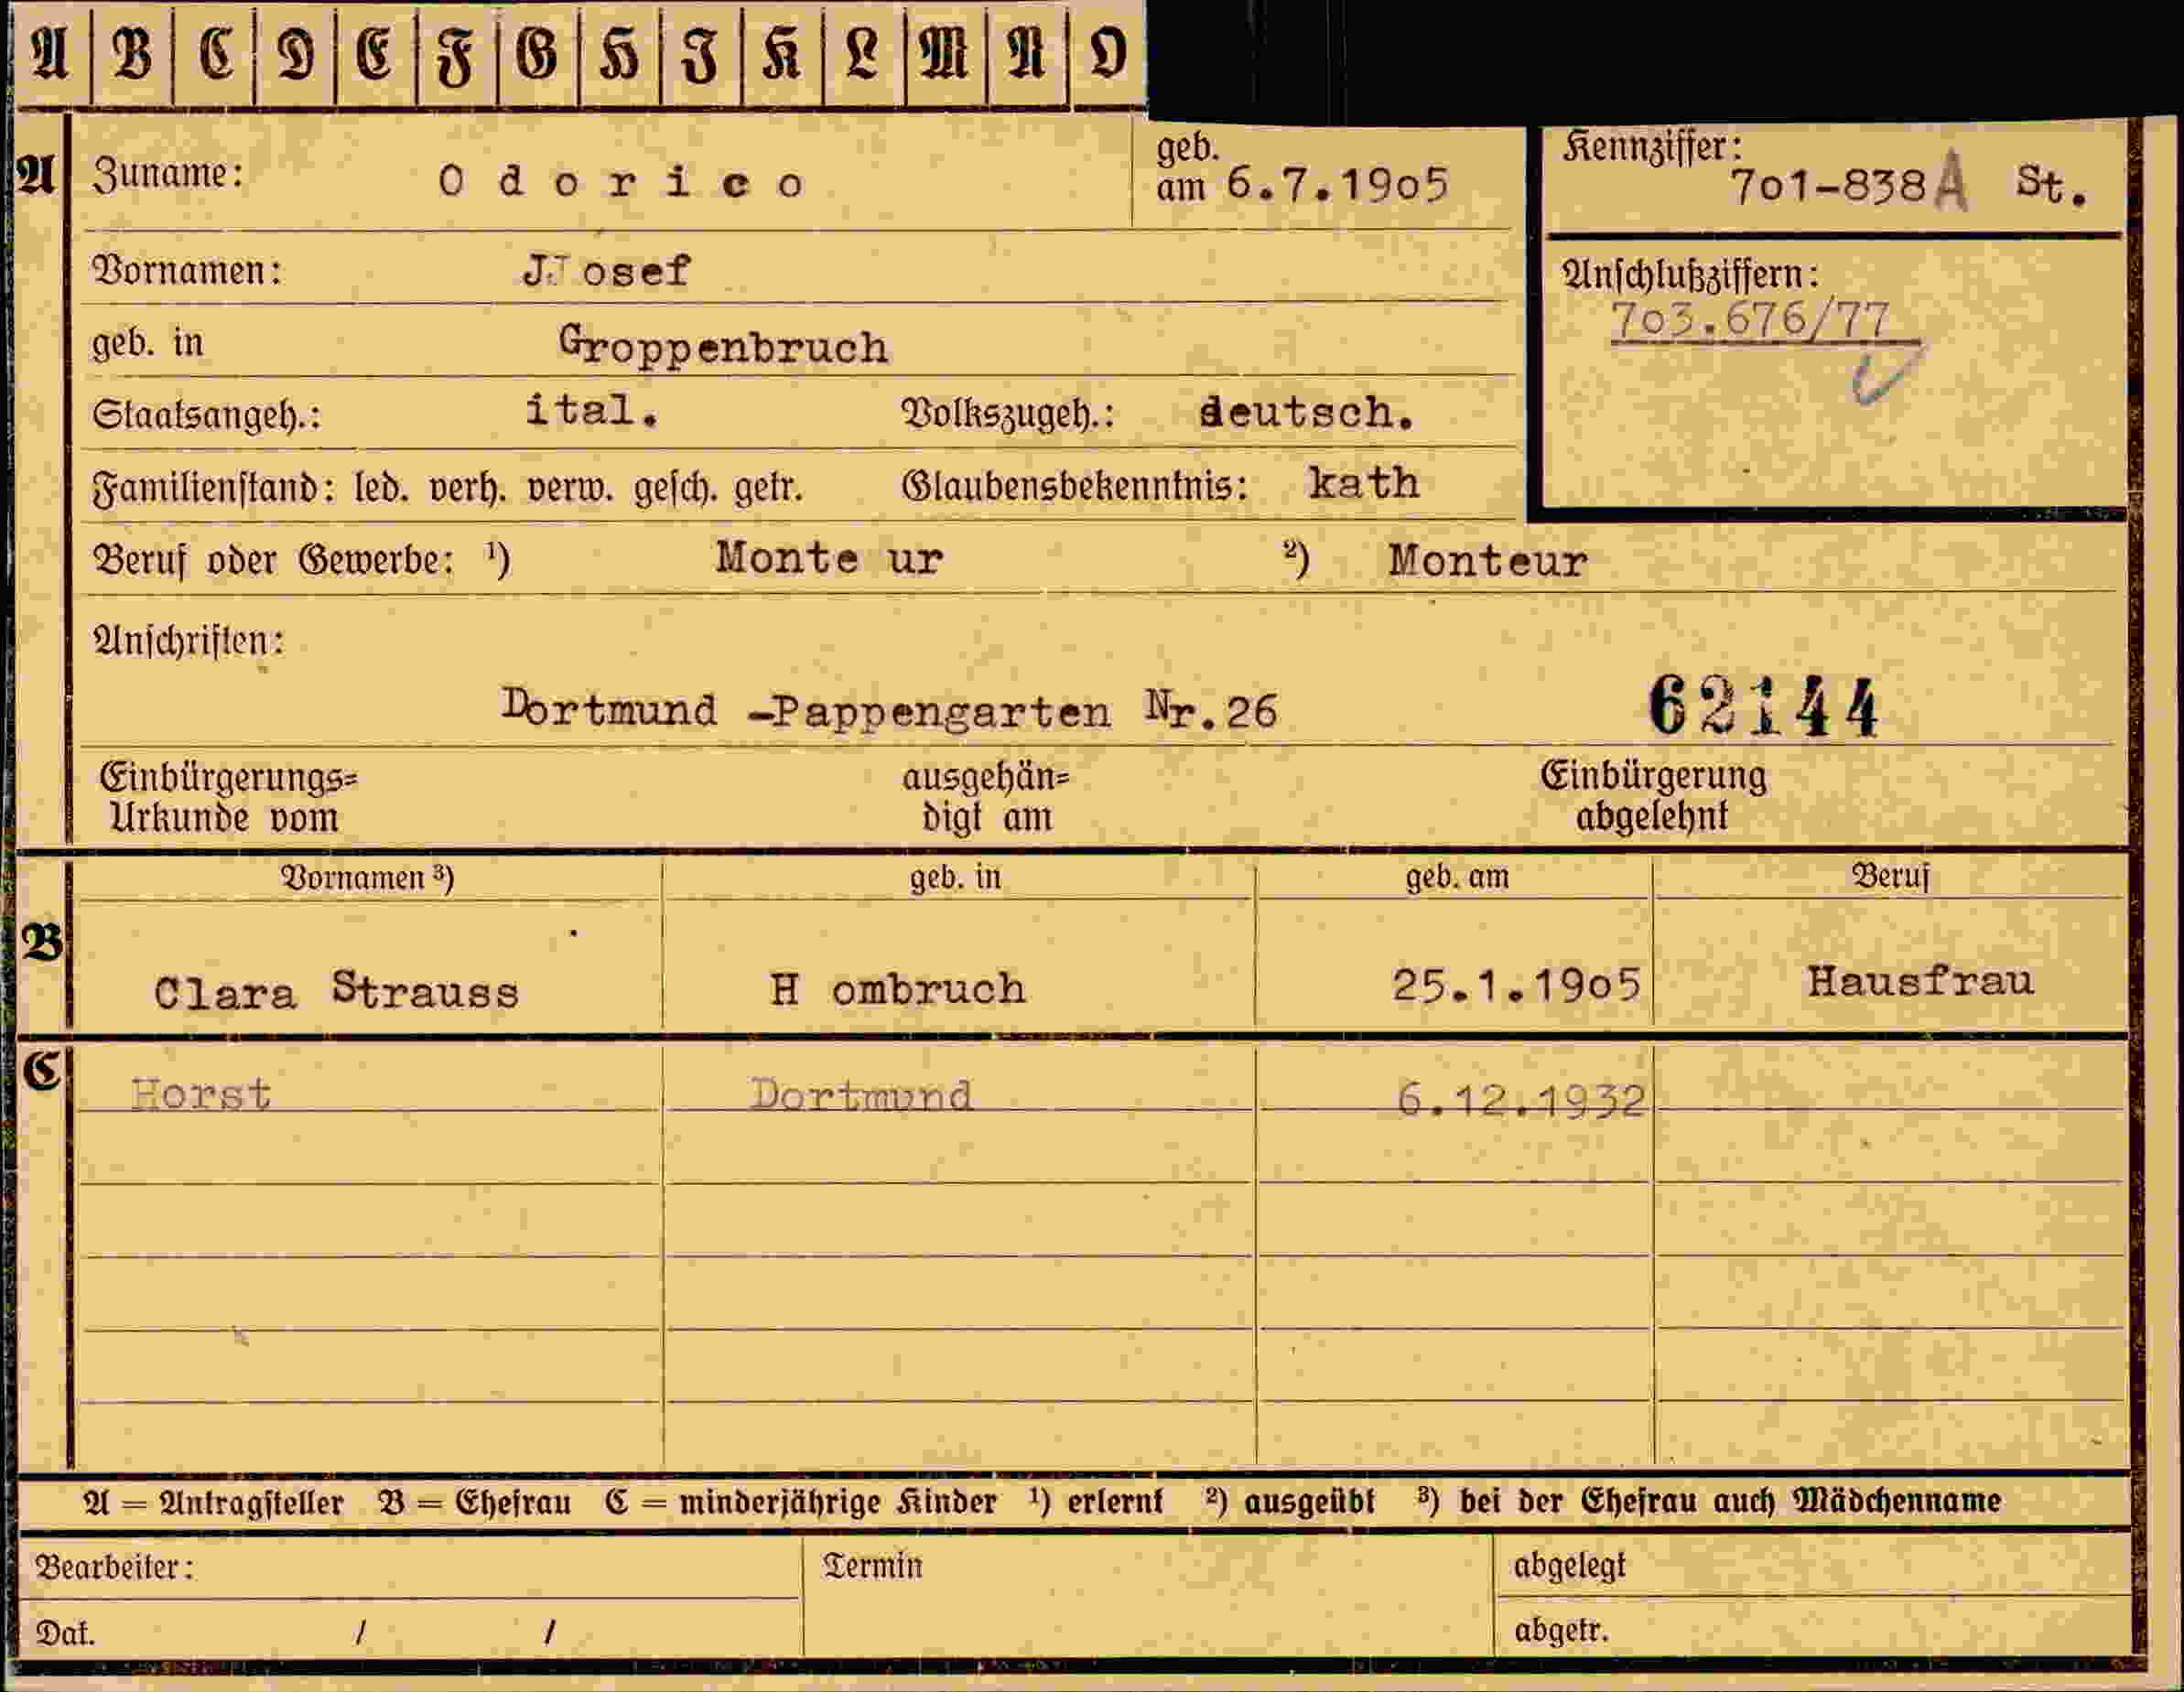 A B C D E F G H I K L M N O
A Zuname: O d o r i c o geb. am 6.7.19o5 Kennziffer: 7o1-838 A St.
Vornamen: J.J osef Anschlußziffern:
7o3.676/77
geb. in Groppenbruch
Staatsangeh.: ital. Volkszugeh.: deutsch.
Familienstand: led. verh. verw. gesch. getr. Glaubensbekenntnis: kath
Beruf oder Gewerbe: ¹) Monte ur ²) Monteur
Anschriften:
Dortmund -Pappengarten Nr.26 62144
Einbürgerungs= ausgehän= Einbürgerung
Urkunde vom digt am abgelehnt
Vornamen ³) geb. in geb. am Beruf
B Clara Strauss H ombruch 25.1.19o5 Hausfrau
C Horst Dortmund 6.12.1932
A = Antragsteller B = Ehefrau C = minderjährige Kinder ¹) erlernt ²) ausgeübt ³) bei der Ehefrau auch Mädchenname
Bearbeiter: Termin abgelegt
Dat. / / abgetr.